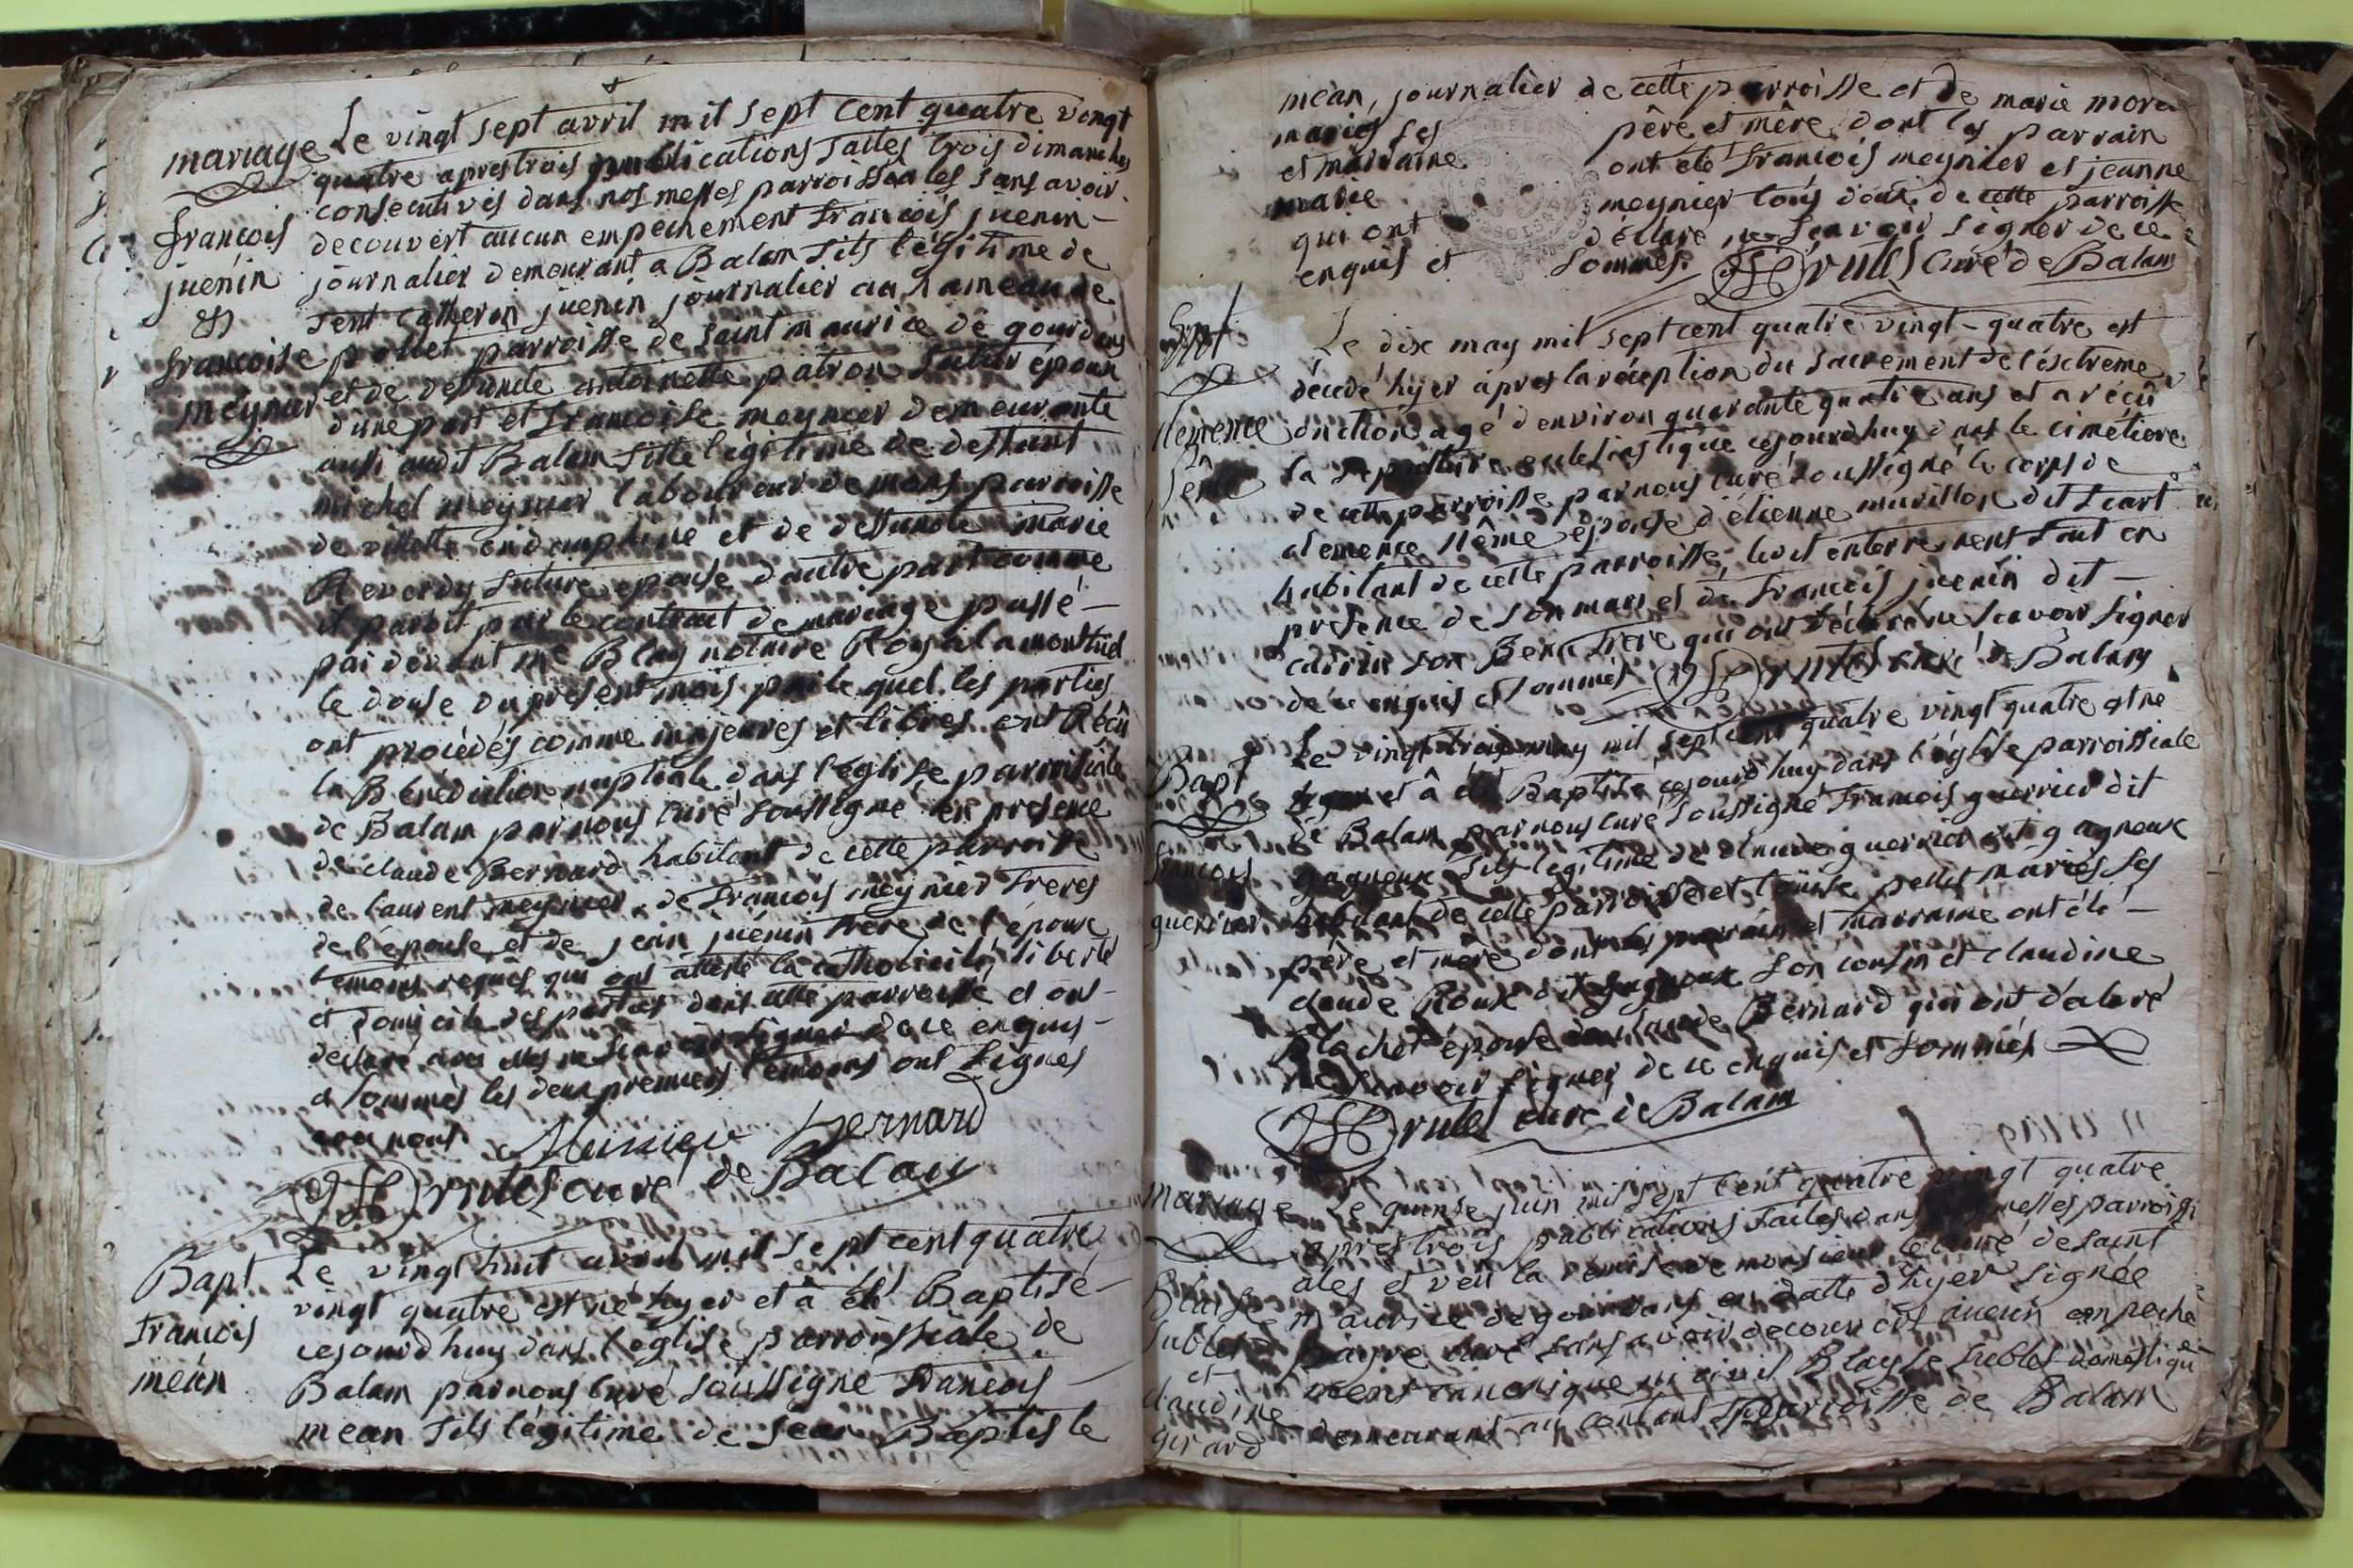 mariage Le vingt sept avril mil sept cent quatre vingt
quatre apres trois publications faites trois dimanches
consecutives dans nos messes parroissiales sans avoir
françois decouvert aucun empechement françois juenin
juenin journalier demeurant a Balam fils légitime de
et feut catherin juenin journalier au hameau de
francoise pollet parroisse de saint maurice de gourdans
meynier et de defuncte antoinette patron futur époux
d'une part et francoise meynier demeurante
aussi audit Balam fille légitime de deffunt
michel meynier laboureur de mons parroisse
de villette en dauphiné et de deffuncte marie
Reverdy future epouse d'autre part comme
il paroit par le contract de mariage passé
par devant me Blay notaire Royal a montluel
le douse du present mois par le quel les parties
ont procédés comme majeures et libres ont Récû
la Bénédiction nuptiale dans l'église parroissiale
de Balam par nous curé soussigné en presence
de claude Bernard habitant de cette parroisse
de laurent meynier de francois meynier freres
de l'epouse et de jean juenin frere de l'époux
temoins requis qui ont attesté la catholicité, liberté
et domicile des parties dans cette parroisse et ont
declaré avec elles ne scavoir signer de ce enquis
et sommés les deux premiers temoins ont signés
avec nous.
Munier Bernard
Brutel curé de Balan
Bapt. Le vingt huit avril mil sept cent quatre
vingt quatre est né hyer et à été Baptisé
francois cejourd'huy dans l'église parroissiale de
meân Balam par nous curé soussigné francois
mean fils légitime de jean Baptiste
mean, journalier de cette parroisse et de marie morel
mariés ses père et mère dont les parrain
et marraine ont été francois meynier et jeanne
marie meynier tous deux de cette parroisse
qui ont déclaré ne scavoir signer de ce
enquis et sommés. Brutel Curé de Balam
Sept Le dix may mil sept cent quatre vingt-quatre est
décedé hyer âpres la réception du sacrement de l'éxtreme
clemence onction agé d'environ quarante quatre ans et a récû
la sepulture eclesiastique cejourd'huy dans le cimetiere
de cette parroisse par nous curé soussigné le corps de
clemence épouse d'étienne murillon dit
habitant de cette parroisse; le dit enterrement fait en
présence de son mari et de francois juenin dit
son Beau frere qui ont déclaré ne scavoir signer
de ce enquis et sommés Brutel curé de Balam
Bapt Le vingt trois may mil sept cent quatre vingt quatre est né
et â été Baptisé cejourd'huy dans l'église parroissiale
de Balam par nous curé soussigné francois guerrier dit
francois gagneux fils légitime de claude guerrier dit gagneux
guerrier habitant de cette parroisse et louise pellet mariés ses
père et mère dont les parrain et marraine ont été
claude Roux dit gagneux son cousin et claudine
Blachet épouse de claude Bernard qui ont déclaré
ne scavoir signer de ce enquis et sommés
Brutel curé de Balam
Mariage Le quinse juin mil sept cent quatre vingt quatre
apres trois publications faites dans messes parroissi
ales et veu la remise de monsieur le curé de saint
Blaise maurice de gourdans en datte d'hyer signée
Sublet payre curé sans avoir decouvert aucun empeche
et ment canonique ni civil Blayse Sublet domestique
claudine demeurant au parroisse de Balam
girard